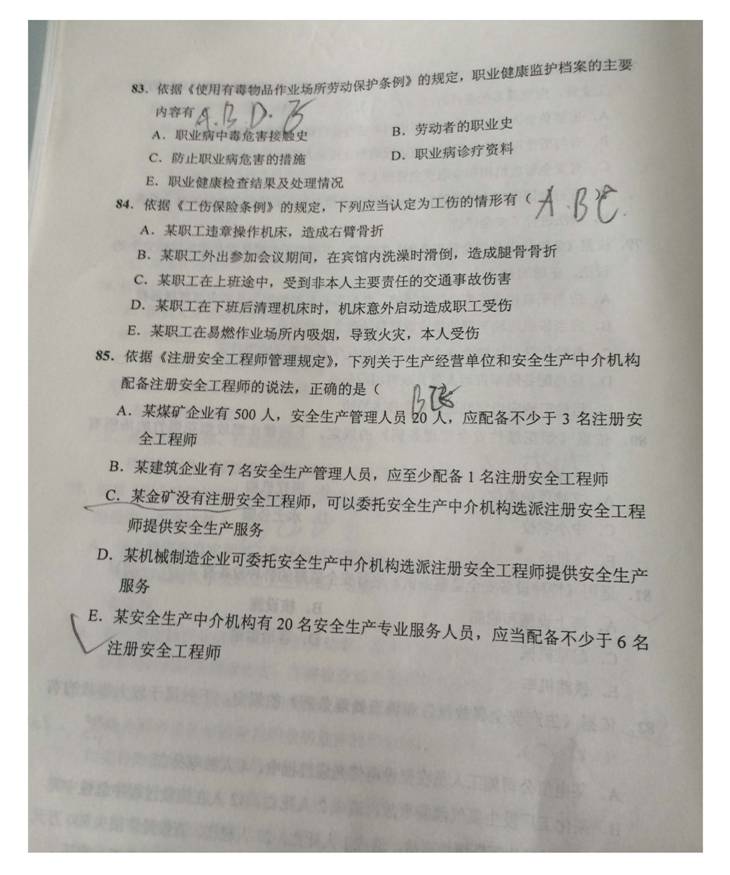 83. 依据《使用有毒物品作业场所劳动保护条例》的规定，职业健康监护档案的主要
内容有 A.B.D.E
A. 职业病中毒危害接触史
B. 劳动者的职业史
C. 防止职业病危害的措施
D. 职业病诊疗资料
E. 职业健康检查结果及处理情况
84. 依据《工伤保险条例》的规定，下列应当认定为工伤的情形有（ A.B
A. 某职工违章操作机床，造成右臂骨折
B. 某职工外出参加会议期间，在宾馆内洗澡时滑倒，造成腿骨骨折
C. 某职工在上班途中，受到非本人主要责任的交通事故伤害
D. 某职工在下班后清理机床时，机床意外启动造成职工受伤
E. 某职工在易燃作业场所内吸烟，导致火灾，本人受伤
85. 依据《注册安全工程师管理规定》，下列关于生产经营单位和安全生产中介机构
配备注册安全工程师的说法，正确的是（ B
A. 某煤矿企业有 500 人，安全生产管理人员 20 人，应配备不少于 3 名注册安
全工程师
B. 某建筑企业有 7 名安全生产管理人员，应至少配备 1 名注册安全工程师
C. 某金矿没有注册安全工程师，可以委托安全生产中介机构选派注册安全工程
师提供安全生产服务
D. 某机械制造企业可委托安全生产中介机构选派注册安全工程师提供安全生产
服务
E. 某安全生产中介机构有 20 名安全生产专业服务人员，应当配备不少于 6 名
注册安全工程师